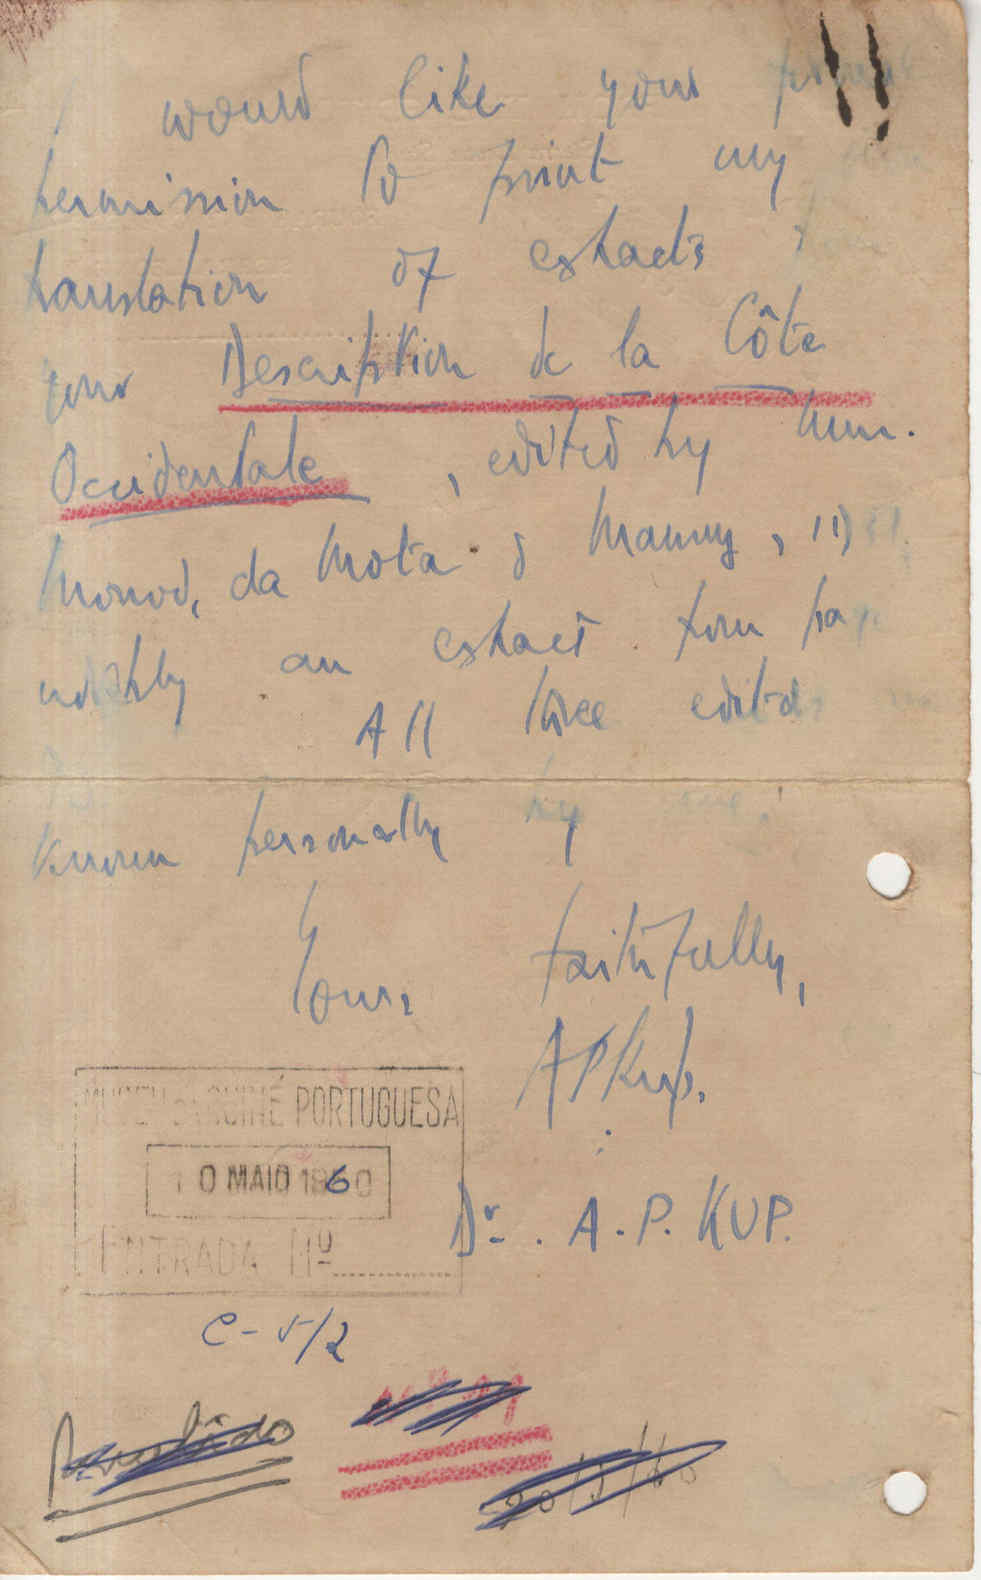 I would like your
permission to print my
translation of extracts from
your Description de la Côte
Occidentale, edited by Mm.
Monod, da Mota & Mauny,
notably an extract from
All three editors
Known personally by me!
Yours faithfully,
APKup.
MUSEU DA GUINÉ PORTUGUESA
10 MAIO 1960
ENTRADA Nº
Dr. A.P. KUP.
C-V/2
20/5/60